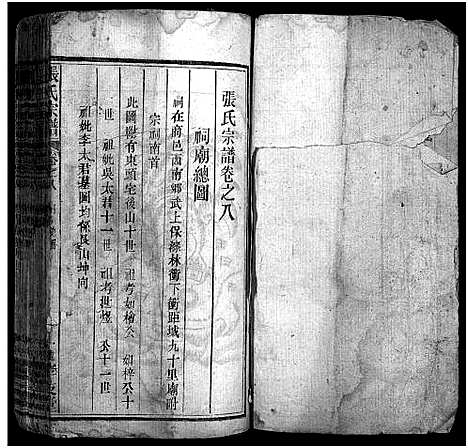 張氏宗譜卷之八
祠廟總圖
祠在府邑西南鄉武上保綠林衝下衝距城九十里廟附
宗祠南首
此圖附有東頭宅後山十世 祖考如檜公 如梓公十
世 祖妣吳太君十一世 祖考世燈公十一世
祖妣李太君墓圖均係艮山坤向
張氏宗譜 卷之八